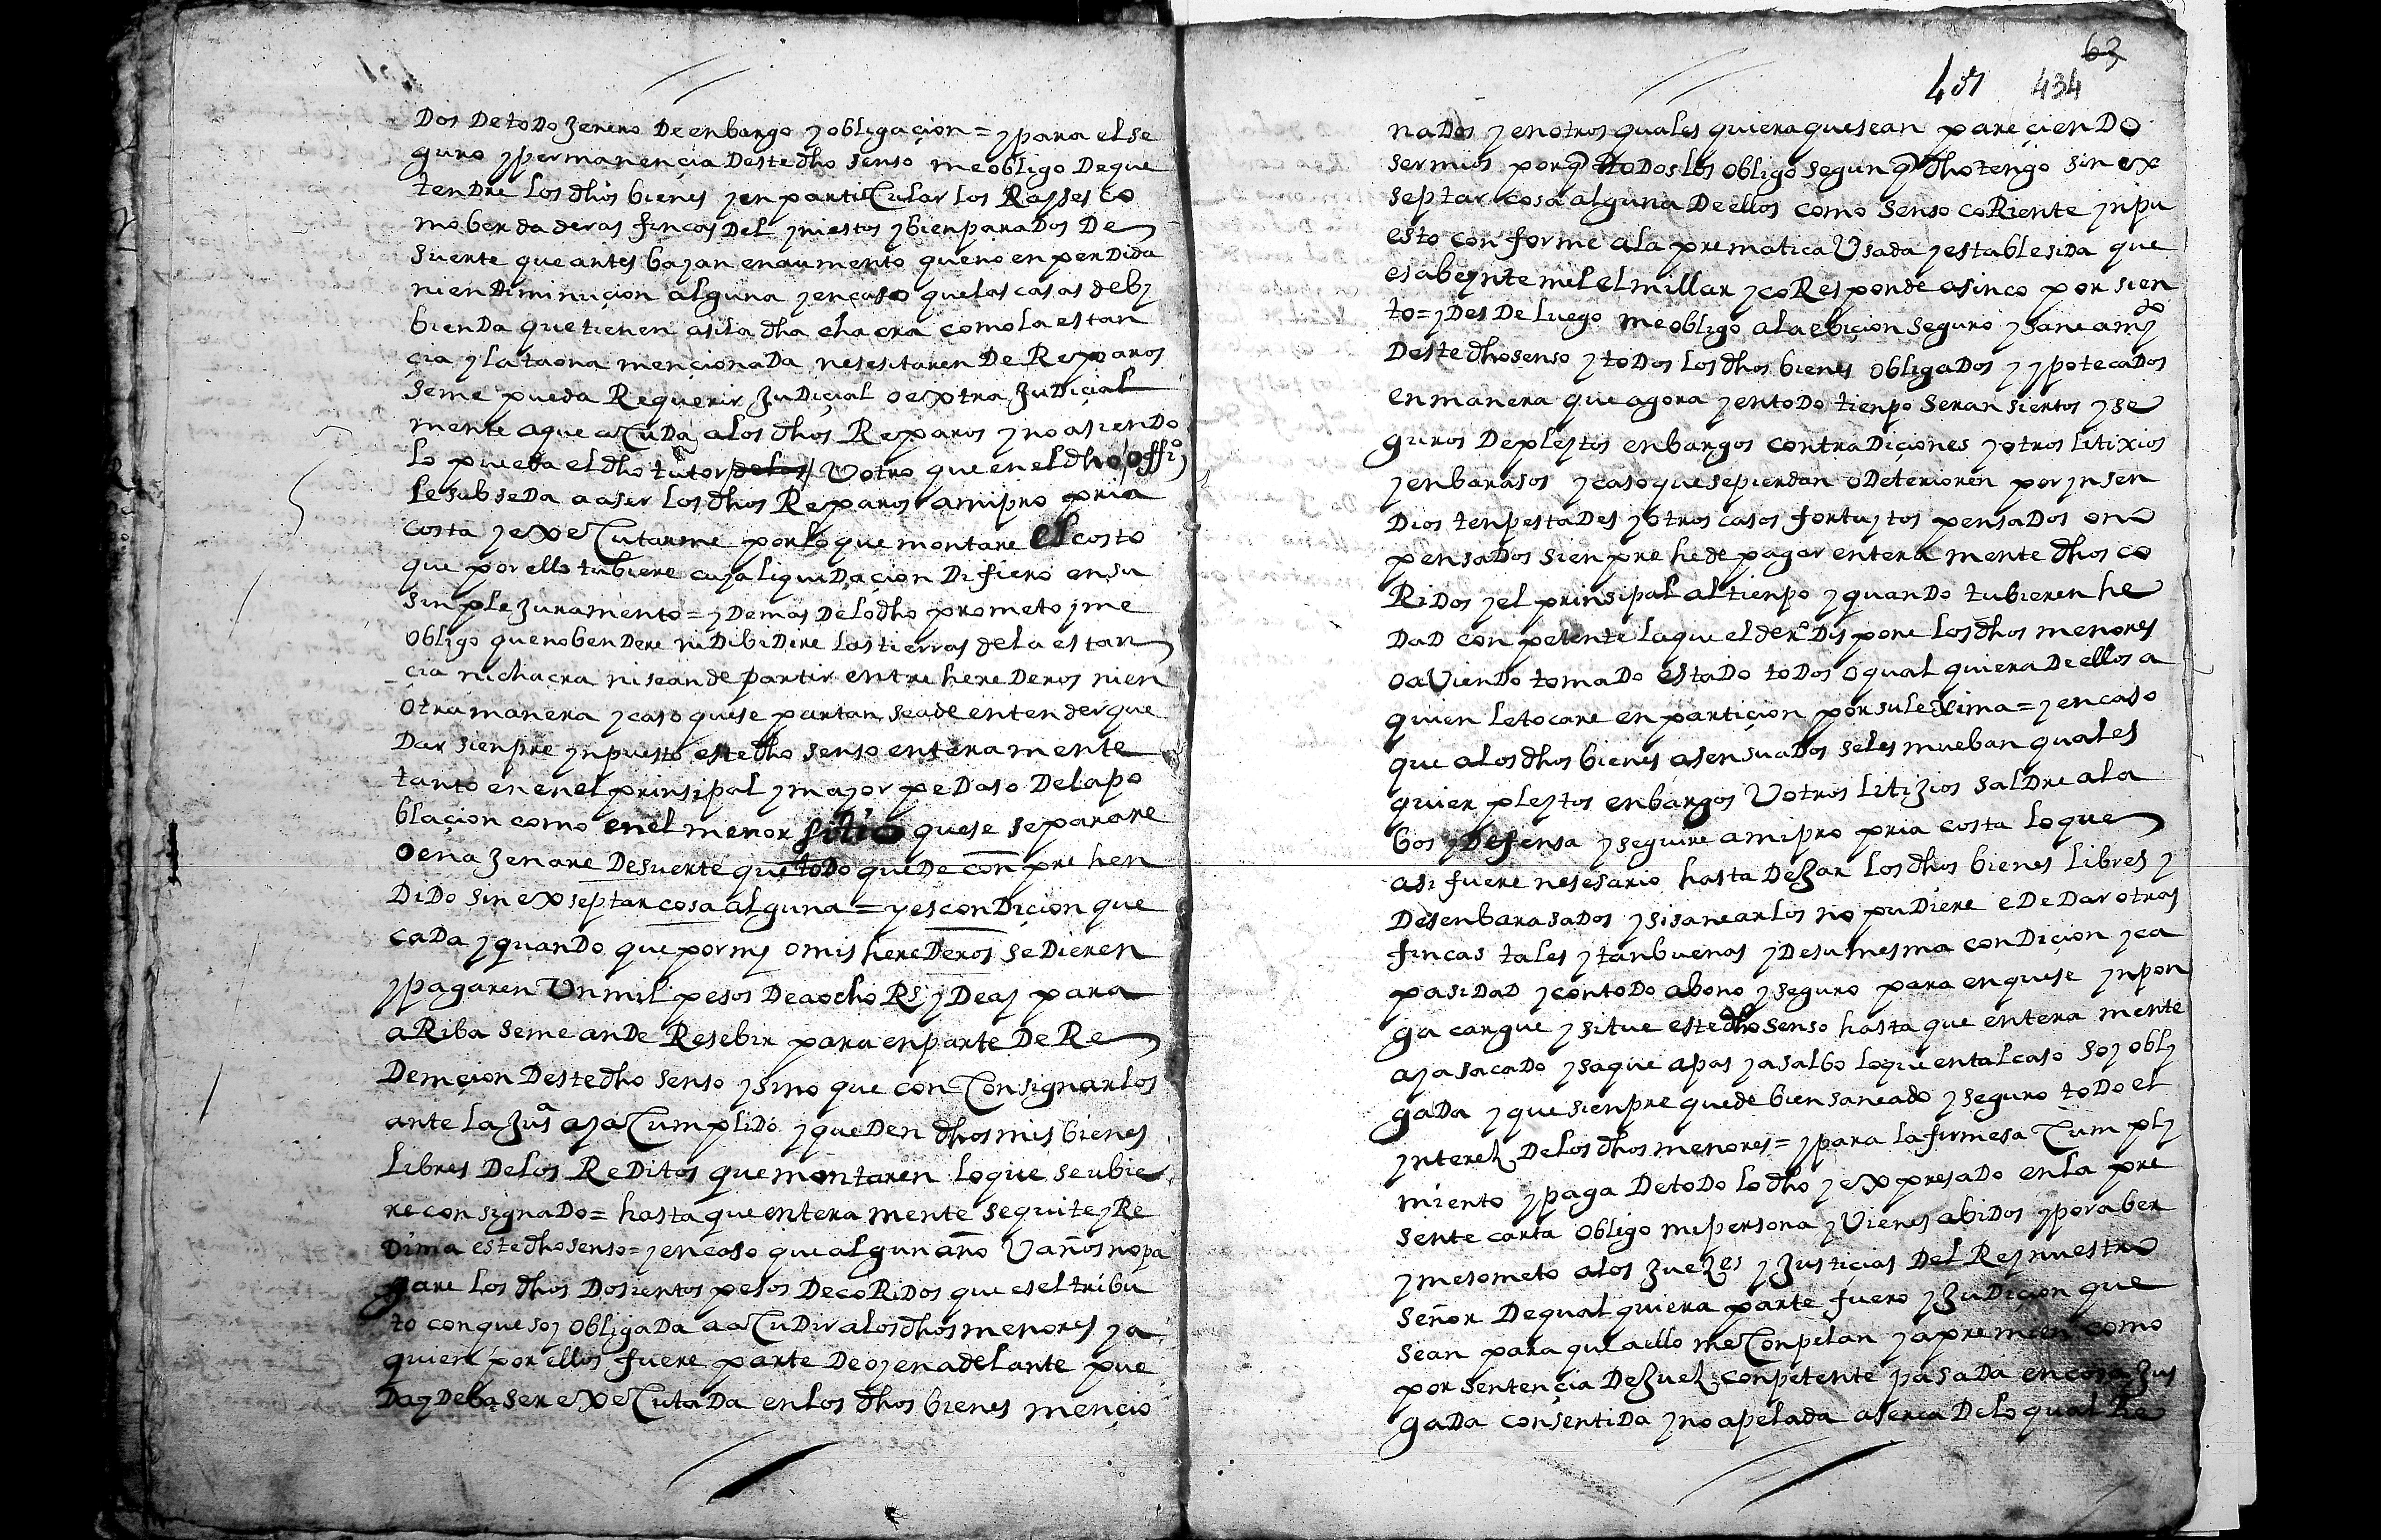 Dos De todo Jenero De enbargo y obligaçion = y para el se
guro y permanençia Deste dho senso me obligo De que
tendre los dhos bienes y en particular los Raises co
mo berdaderas fincas Del yniestos y bien parados De
suerte que antes bayan en aumento que no en perdida
ni en Diminuçion alguna y en caso que las casas de bi
bienda que tienen asi la dha chacra como la estan
çia y la taona mençionada nesesitaren De Reparos
se me pueda Requerir Judiçial o extra Judiçial
mente a que acuda a los dhos Reparos y no asiendo
lo pueda el dho tutor de los U otro que en el dho offiº
le subseda a aser los dhos Reparos a mi pro pria
costa y executarme por lo que montare el costo
que por ello tubiere cuya liquidaçion Difiero en su
sinple Juramento = y Demas De lo dho prometo y me
obligo que no bendere ni Dibidire las tierras de la estan
çia ni chacra ni se an de partir entre herederos ni en
otra manera y caso que se partan se a de entender que
Dar sienpre ynpuesto este dho senso enteramente
tanto en en el prinsipal y mayor pedaso De la po
blaçion como en el menor sitio que se separare
o enaJenare De suerte que todo quede conprehen
Dido sin exseptar cosa alguna = y es condiçion que
cada y quando que por mi o mis herederos se Dieren
y pagaren Un mil pesos De a ocho Rs y De ay para
aRiba se me an de Resebir para en parte De Re
Demçion Deste dho senso y sino que con consignarlos
ante la Jusª aya cumplido y queden dhos mis bienes
libres De los Reditos que montaren lo que se ubie
re consignado = hasta que enteramente se quite y Re
Dima este dho senso = y en caso que algun año U años no pa
gare los dhos Dosientos pesos De coRidos que es el tribu
to con que soy obligada a acudir a los dhos menores y a
quien por ellos fuere parte De oy en adelante pue
Da y Deba ser executada en los dhos bienes mençio
63
434
nados y en otros quales quiera que sean pareçiendo
ser mios porq todos los obligo segun q dho tengo sin ex
septar cosa alguna De ellos como senso coRiente ynpu
esto conforme a la prematica Usada y establesida que
es a beynte mil el millar y coResponde a sinco por sien
to = y Desde luego me obligo a la ebiçion seguro y saneamto
Deste dho senso y todos los dhos bienes obligados y ypotecados
en manera que agora y en todo tienpo seran siertos y se
guros De pleytos enbargos contradiçiones y otros litixios
y enbarasos y caso que se pierdan o Deterioren por ynsen
Dios tenpestades y otros casos fortuytos pensados o no
pensados sienpre he de pagar enteramente dhos co
Ridos y el prinsipal al tienpo y quando tubieren he
dad conpetente la que el derº Dispone los dhos menores
o aViendo tomado estado todos o qual quiera De ellos a
quien le tocare en partiçion por su lexima = y en caso
que a los dhos bienes asensuados se les mueban quales
quier pleytos enbargos U otros litiJios saldre a la
bos y Defensa y seguire a mi pro pria costa lo que
asi fuere nesesario hasta deJar los dhos bienes libres y
Desenbarasados y si sanearlos no pudiere e De Dar otras
fincas tales y tan buenas y De su mesma condiçion y ca
pasidad y con todo abono y seguro para en que se ynpon
ga cargue y situe este dho senso hasta que enteramente
aya sacado y saque a pas y a salbo lo que en tal caso soy obli
gada y que sienpre quede bien saneado y seguro todo el
ynterez De los dhos menores = y para la firmesa cumpli
miento y paga De todo lo dho y expresado en la pre
sente carta obligo mi persona y Vienes abidos y por aber
y me someto a los Juezes y Justiçias Del Rey nuestro
señor De qual quiera parte fuero y Judiçion que
sean para que a ello me conpelan y apremien como
por sentençia De Juez conpetente pasada en cosa Jus
gada consentida y no apelada aserca De lo qual Re